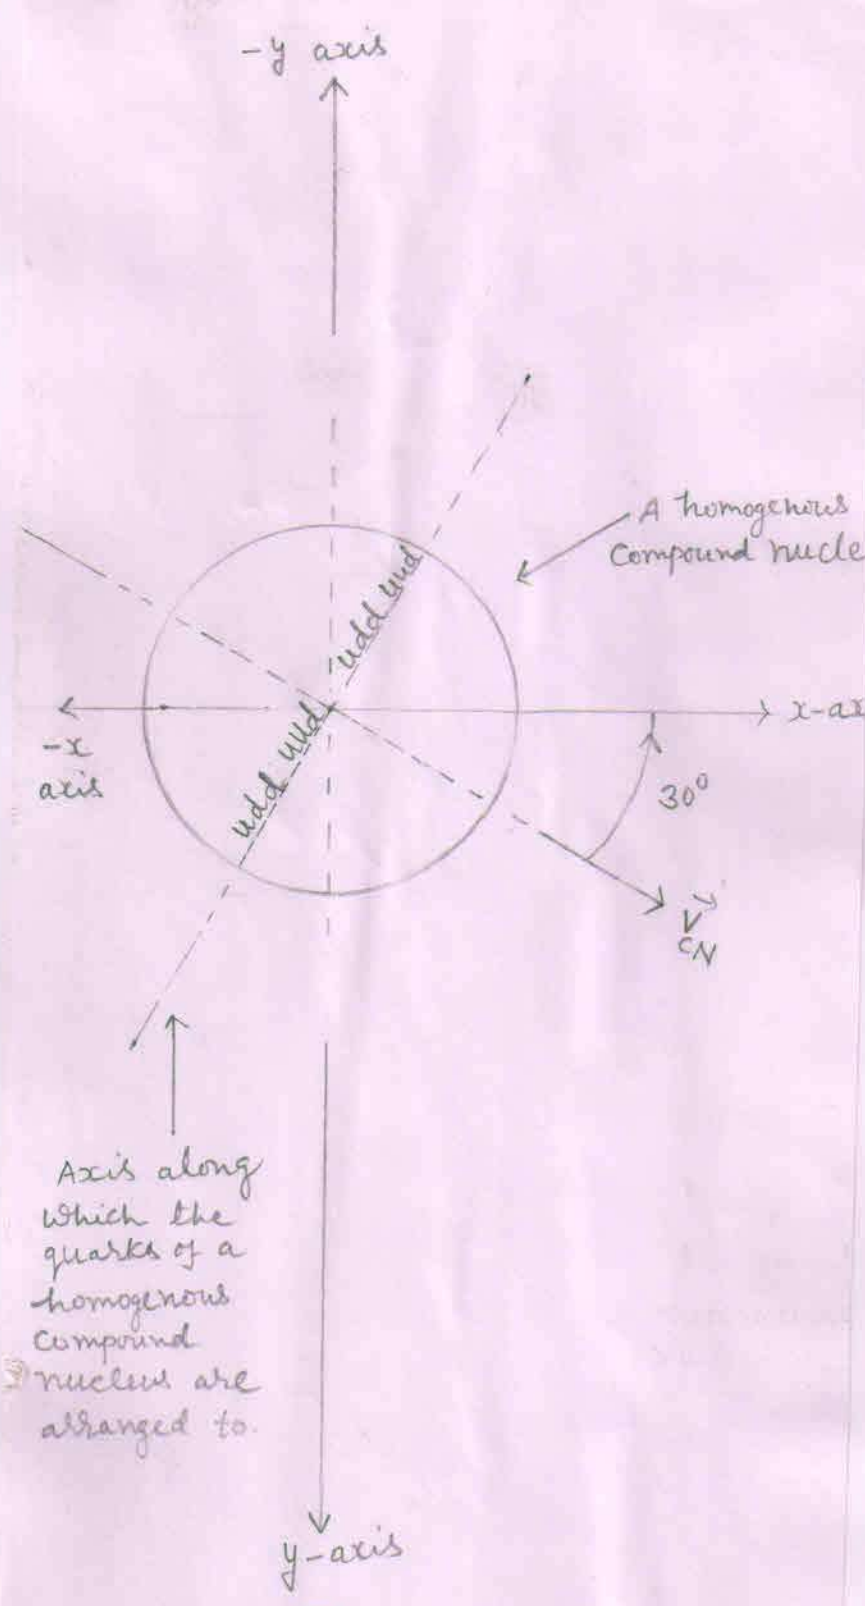 -y axis
A homogenous
Compound nucle
udd uud
x-ax
-x
axis
udd uud
30°
V⃗
CN
Axis along
which the
quarks of a
homogenous
compound
nucleus are
arranged to.
y-axis